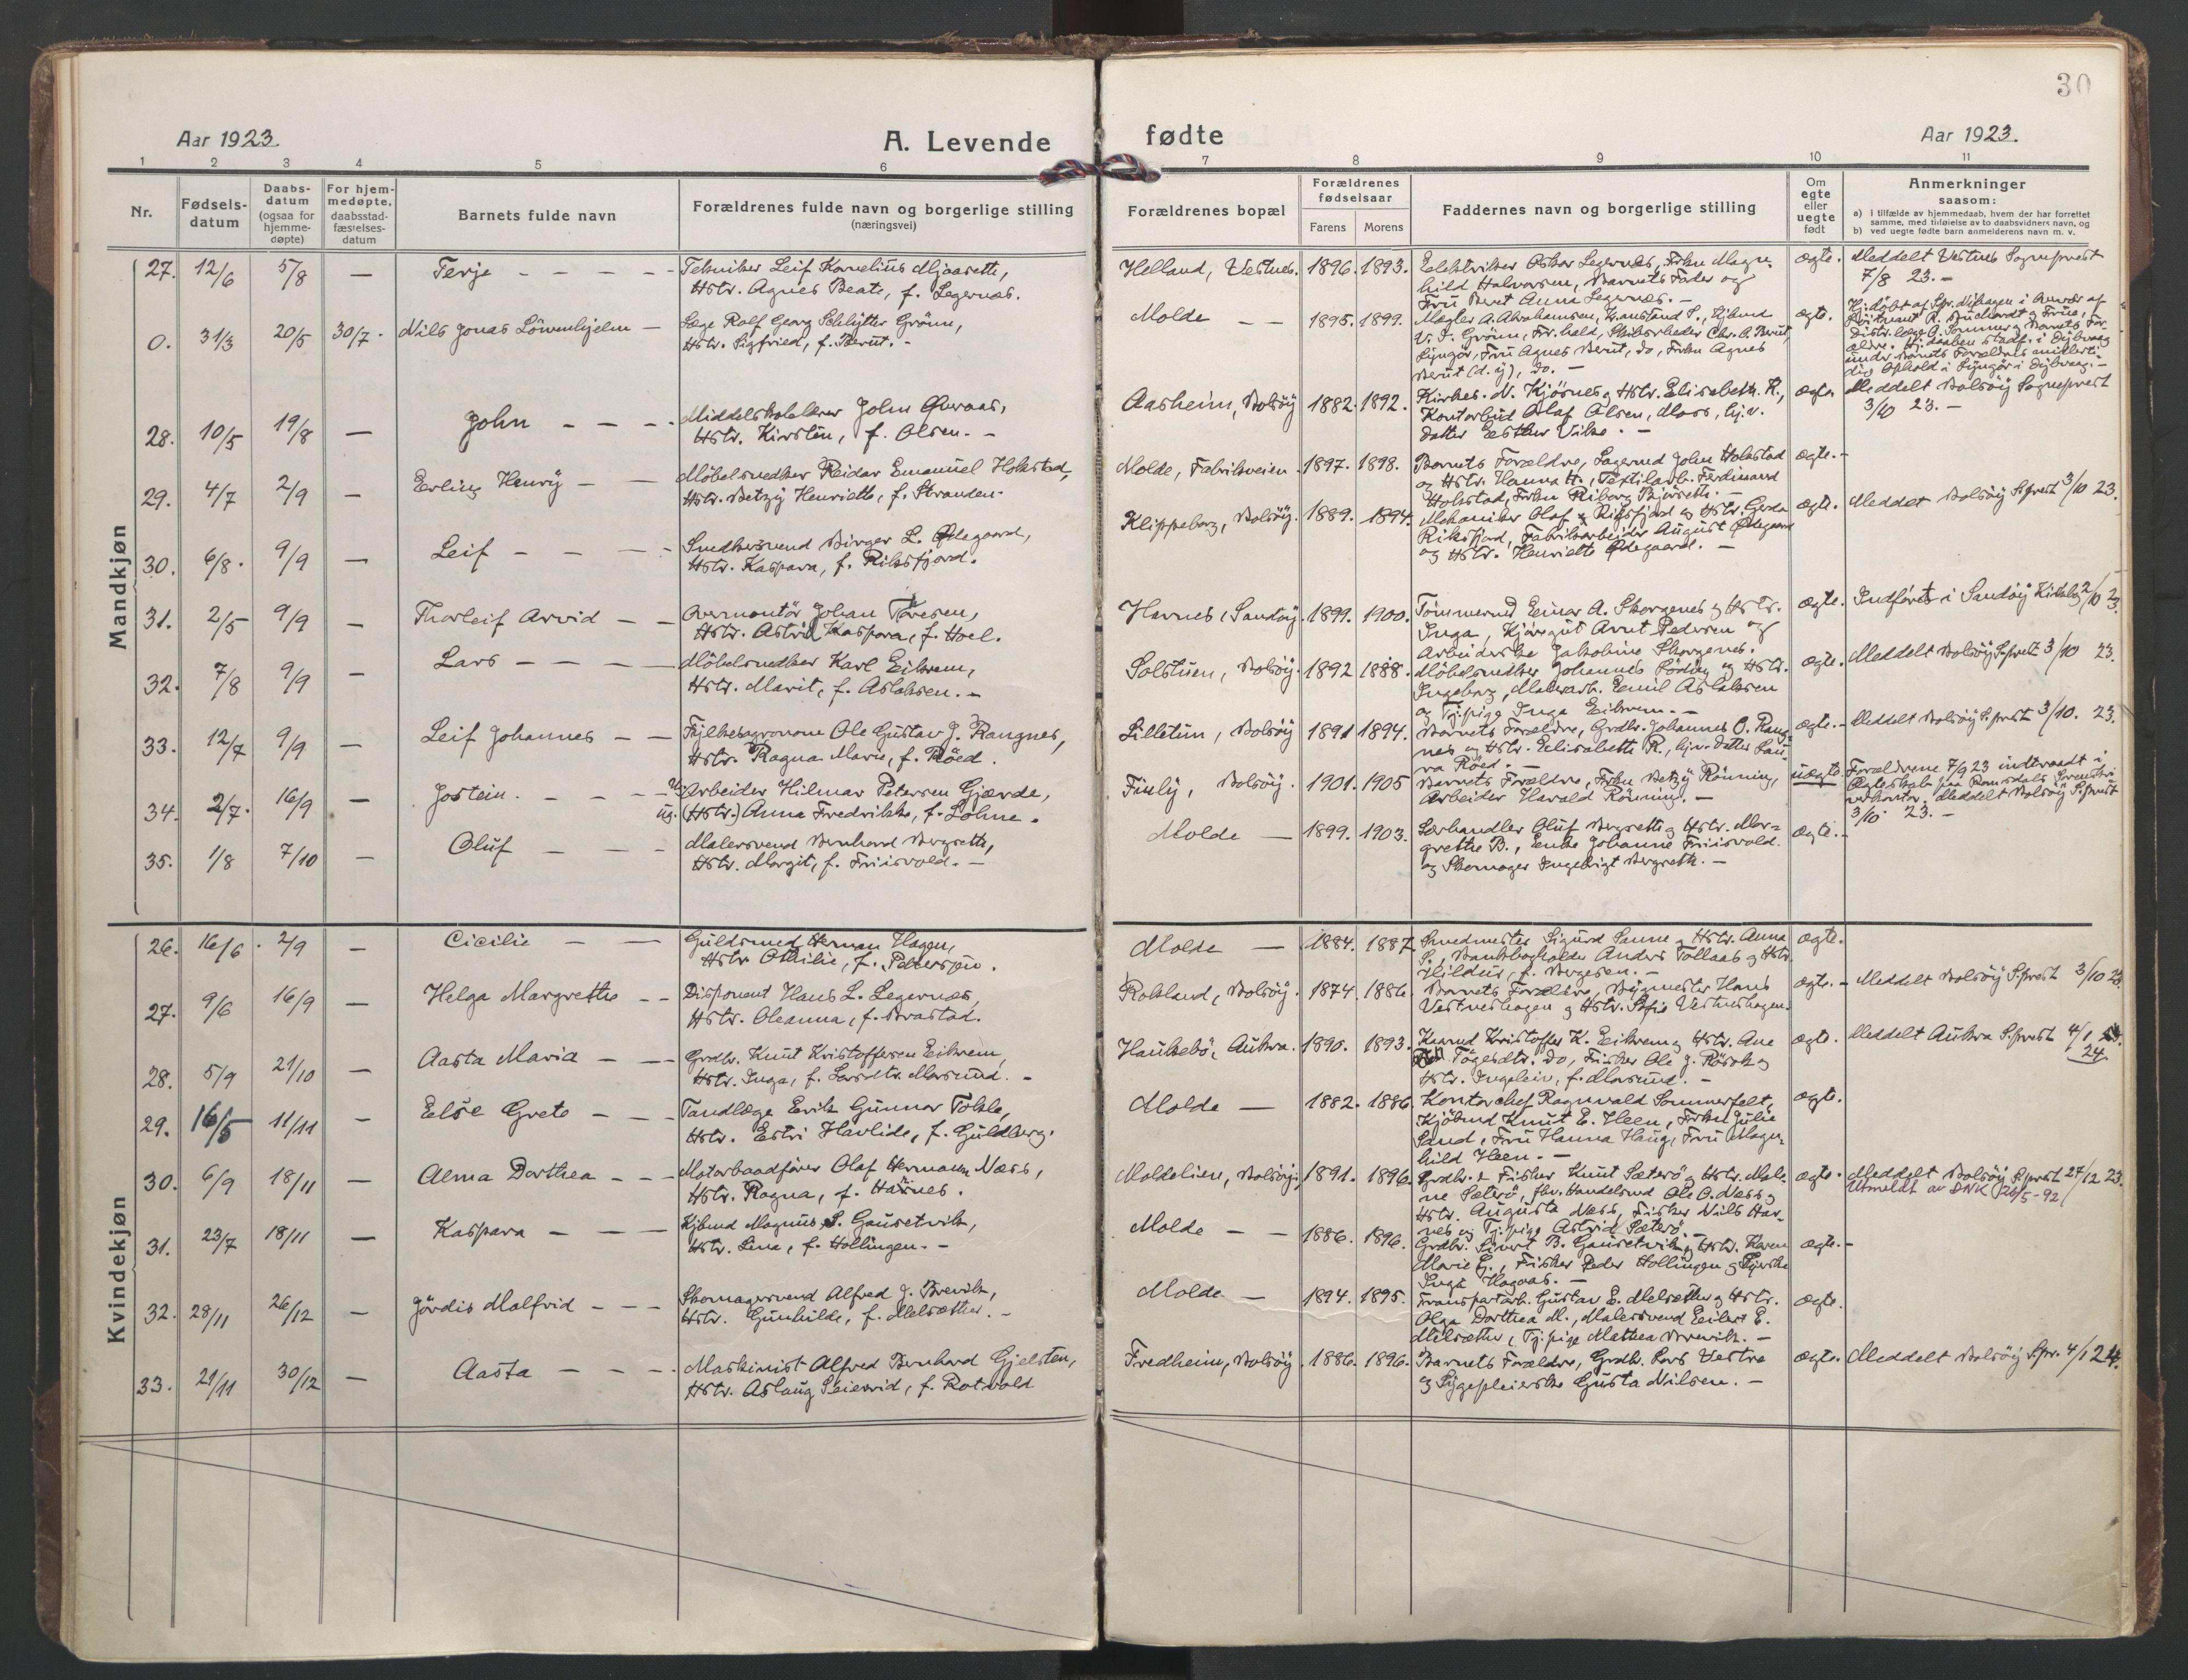 30
Aar 1923.
A. Levende
fødte
Aar 1923.
1 2 3 4 5 6 7 8 9 10 11
Nr.
Fødsels-
datum
Daabs-
datum
(ogsaa for
hjemme-
døpte)
For hjem-
medøpte,
daabsstad-
fæstelses-
datum
Barnets fulde navn
Forældrenes fulde navn og borgerlige stilling
(næringsvei)
Forældrenes bopæl
Forældrenes
fødselsaar
Farens Morens
Faddernes navn og borgerlige stilling
Om
egte
eller
uegte
født
Anmerkninger
saasom:
a) i tilfælde av hjemmedaab, hvem der har forrettet
samme, med tilføielse av to daabsvidners navn, og
b) ved uegte fødte barn anmelderens navn m. v.
Mandkjøn
27. 12/6 5/8 — Terje
Tekniker Leif Kornelius Mjaaseth,
Hstr. Agnes Beate, f. Legernæs.
Helland, Vestnes. 1896. 1893.
Elektriker Oskar Legernæs, Frkn Magn-
hild Halvorsen, Barnets Fader og
Fru Beret Anna Legernæs. —
ægte.
Meddelt Vestnes Sogneprest
7/8 23. —
0. 31/3 20/5 30/7. Nils Jonas Löwenhjelm —
Læge Rolf Georg Schlytter Grönn,
Hstr. Sigfried, f. Berut. —
Molde — — 1895. 1899.
Mægler A. Abrahamsen, Kr.anstad S., Kjbmd
V. F. Grönn, Fr.hald, Skibsrheder Chr. A. Berut,
Lyngör, Fru Agnes Berut, do, Frkn Agnes
Berut (d. y), do. —
ægte.
28. 10/5 19/8 — John
Middelskolelærer John Qveraas,
Hstr. Kirsten, f. Olsen. —
Aasheim, Bolsöy 1882. 1892.
Kirkes. N. Kjörnes, Hstr. Elisabeth K.,
Kontorbud Olaf Olsen, Moss, hjv.
datter Esther Vike. —
ægte.
Meddelt Bolsöy Sogneprest
3/10 23. —
29. 4/7 2/9 — Erling Henry —
Möbelsnedker Reidar Emanuel Hokstad,
Hstr. Betzy Henriette, f. Stranden.
Molde, Fabrikveien. 1897. 1898.
Barnets Forældre, Lagermd John Hokstad
og Hstr. Hanna H., Textilarb. Ferdinand
Hokstad, Frkn Riborg Bjerseth. —
ægte. —
30. 6/8. 9/9 — Leif
Snedkersvend Birger L. Ødegaard,
Hstr. Kaspara, f. Riksfjord.
Klippeborg, Bolsöy. 1889. 1894.
Mekaniker Olaf Riksfjord og Hstr. Gerda
Riksfjord, Fabrikarbeider August Ødegaard
og Hstr. Henriette Ødegaard. —
ægte.
Meddelt Bolsöy S.prest 3/10 23.
31. 2/5 9/9 — Thorleif Arvid
Avermontör Johan Toresen,
Hstr. Astrid Kaspara, f. Hoel.
Havnes, Sandöy. 1899. 1900.
Tömmermd Einar A. Skorgenes og Hstr.
Inga, Kjöregut Arnt Pedersen og
Arbeiderske Jakobine Skorgenes.
ægte.
Indföres i Sandöy Kirkbg 2/10 23.
32. 7/8 9/9 — Lars
Möbelsnedker Karl Eikrem,
Hstr. Marit, f. Aslaksen. —
Solstuen, Bolsöy. 1892 1888.
Möbelsnedker Johannes Rödöy og Hstr.
Ingeborg, Malerarb. Emil Aslaksen
og Tj.pige Inga Eikrem. —
ægte.
Meddelt Bolsöy S.prest 3/10 23.
33. 12/7 9/9 — Leif Johannes
Fylkesagronom Ole Gustav J. Rangnes,
Hstr. Ragna Marie, f. Röed.
Lilletun, Bolsöy 1891 1894.
Barnets Forældre, Grdbr. Johannes O. Rang-
nes og Hstr. Elisabeth R., hjv. datter Lau-
ra Röed. —
ægte. —
Meddelt Bolsöy S.prest 3/10. 23.
34. 2/7. 16/9 — Jostein.
Ug. Arbeider Hilmar Petersen Gjærde,
ug. (Hstr.) Anna Fredrikke, f. Löhne.
Furly, Bolsöy. 1901. 1905
Barnets Forældre, Frkn Betzy Rönning,
Arbeider Harald Rönning. —
uægte
Forældrene 7/9 23 indtraadt i
Ægteskab paa Romsdals Sorenskri-
verkontor. Meddelt Bolsöy S.prest
3/10 23. —
35. 1/8 7/10 — Oluf
Malersvend Bernhard Bergseth,
Hstr. Margit, f. Friisvold. —
Molde — 1899. 1903.
Lærhandler Oluf Bergseth og Hstr. Mar-
grethe B., Enke Johanne Friisvold.
og Skomager Ingebrigt Bergseth. —
ægte. —
Kvindekjøn
26. 16/6. 2/9 — Cicilie
Guldsmed Herman Hagen,
Hstr Othilie, f. Petersen.
Molde — 1884. 1887
Smedmester Sigurd Sanne og Hstr. Anna
S., Bankbogholder Anders Tollaas og Hstr
Hildur, f. Bergesen. —
ægte.
27. 9/6 16/9 — Helga Margrethe
Disponent Hans L. Legernæs,
Hstr. Oleanna, f. Brastad.
Rokland, Bolsöy. 1874. 1886.
Barnets Forældre, Bygmester Hans
Vestneshagen og Hstr. Sofie Vestneshagen.
ægte. —
Meddelt Bolsöy S.prest 3/10 23.
28. 5/9 21/10 — Aasta Maria
Grdbr. Knut Kristoffersen Eikrem,
Hstr. Inga, f. Larsdtr. Morsund. —
Haukebö, Aukra. 1890. 1893.
Kaarmd Kristoffer K. Eikrem og Hstr. Ane
Tögesdtr. do, Fisker Ole J. Rörok og
Hstr. Ingeleiv, f. Morsund. —
ægte.
Meddelt Aukra S.prest 4/1
24.
29. 16/5 11/11 — Else Grete
Tandlæge Erik Gunnar Tokle,
Hstr. Estri Havlide, f. Guldberg.
Molde — 1882. 1886.
Kontorchef Ragnvald Sommerfelt,
Kjöbmd Knut E. Heen, Frkn Julie
Sand, Fru Hanna Haug, Fru Magn-
hild Heen. —
ægte.
30. 6/9 18/11 — Alma Dorthea
Motorbaadförer Olaf Hermann Næss,
Hstr. Ragna, f. Harnes.
Moldelien, Bolsöy. 1891. 1896.
Grdbr. & Fisker Knut Sæterö og Hstr. Male-
ne Sæterö, fhv. Handelsmd Ole O. Næss og
Hstr. Augusta Næss, Fisker Nils Har-
nes og Tj.pige Astrid Sæterö. —
ægte.
Meddelt Bolsöy S.prest 27/12 23.
Utmeldt av DNK 26/5-92
31. 23/7 18/11 — Kaspara
Kjbmd Magnus S. Gausetvik,
Hstr. Lina, f. Hollingen. —
Molde — — 1886. 1896.
Grdbr. Sivert B. Gausetvik og Hstr. Karen
Marie G., Fisker Peder Hollingen og Syerske
Inga Hagaas. —
ægte. —
32. 28/11 26/12 — Jördis Malfrid
Skomagersvend Alfred J. Brevik,
Hstr. Gunhilde, f. Melsæther. —
Molde — 1894. 1895.
Transportarb. Gustav E. Melsæther og Hstr.
Olga Dorthea M., Malersvend Eilert E.
Melsæther, Tj.pige Mathea Brevik. —
ægte.
33. 21/11 30/12 — Aasta
Maskinist Alfred Bernhard Gjelsten,
Hstr. Aslaug Seiervid, f. Rotvold
Fredheim, Bolsöy. 1886. 1896.
Barnets Forældre, Grdbr. Lars Vestre
og Sygepleierske Gusta Nilsen. —
ægte.
Meddelt Bolsöy Spr. 4/1 24.